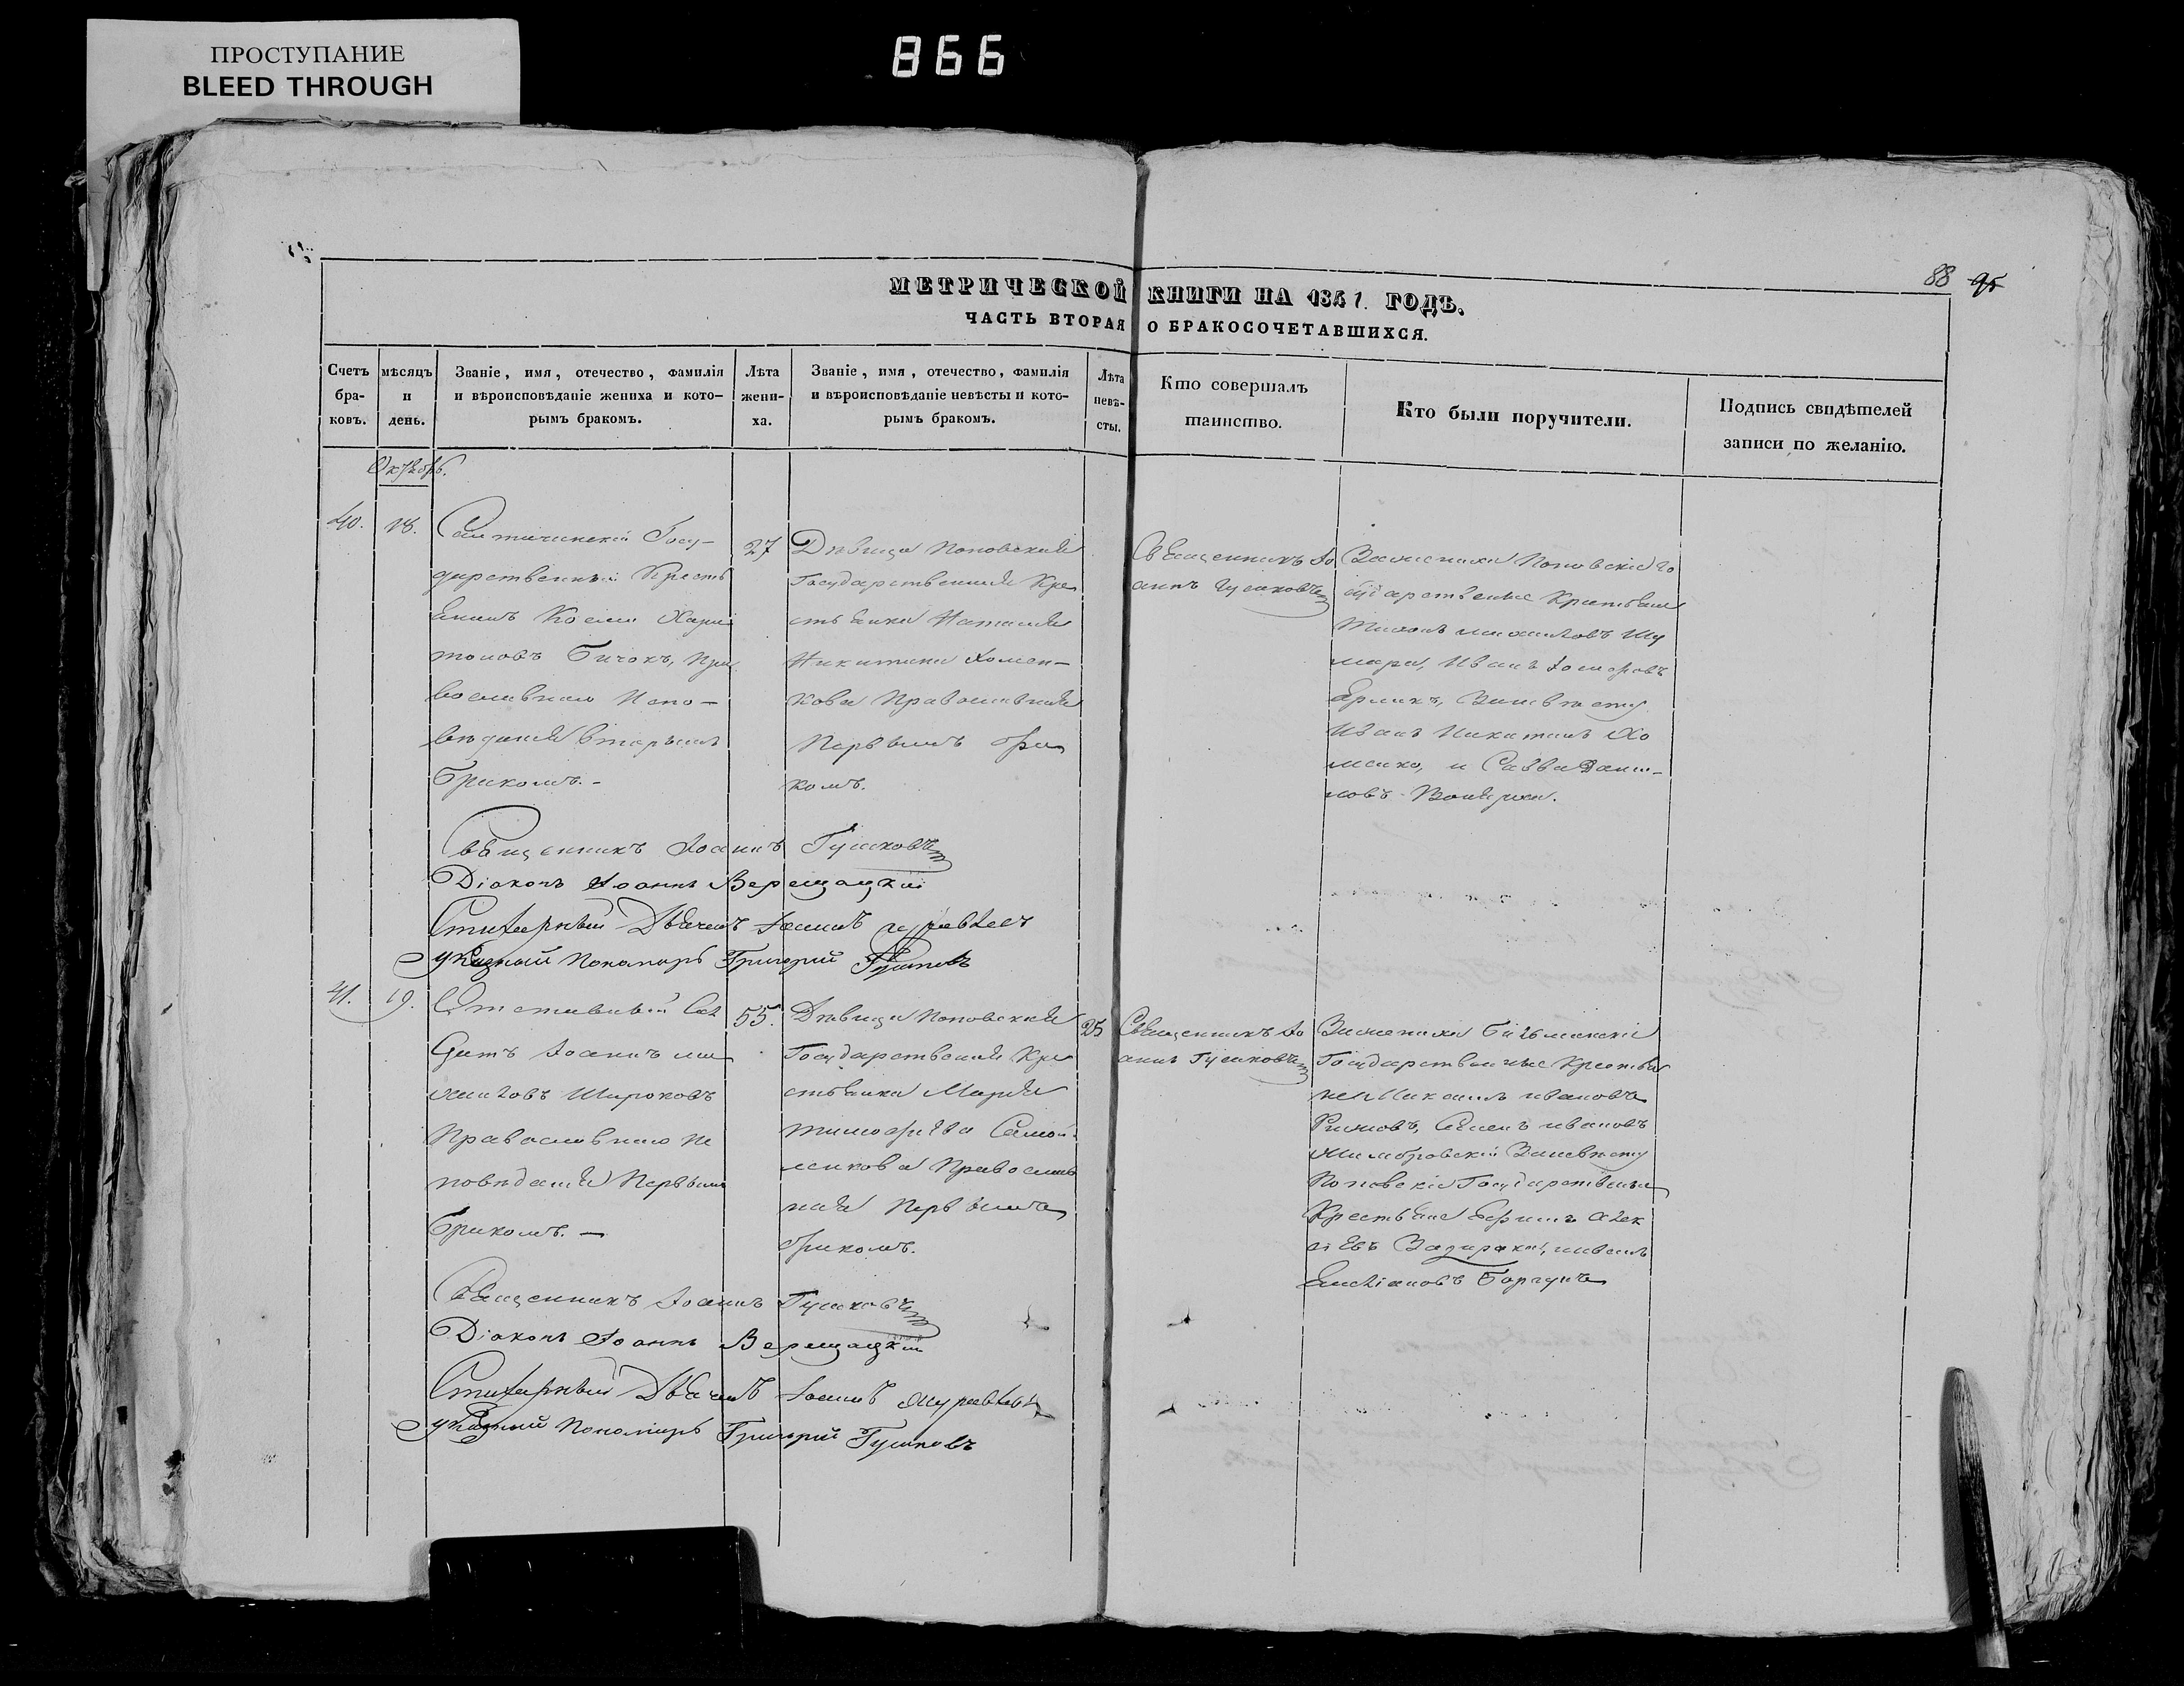 ПРОСТУПАНИЕ
BLEED THROUGH
866
88 95
МЕТРИЧЕСКОЙ КНИГИ НА 1841. ГОДЪ.
ЧАСТЬ ВТОРАЯ О БРАКОСОЧЕТАВШИХСЯ.
Счетъ бра-ковъ.
мѣсяцъ и день.
Званіе, имя, отечество, фамилія
и вѣроисповѣданіе жениха и кото-
рымъ бракомъ.
Лѣта
жени-
ха.
Званіе, имя, отечество, фамилія
и вѣроисповѣданіе невѣсты и кото-
рымъ бракомъ.
Лѣта
невѣ-
сты.
Кто совершалъ
таинство.
Кто были поручители.
Подпись свидѣтелей
записи по желанію.
Октябрь.
40.
18.
Госу-
дарственный Кресть
янинъ Косма Хари
тоновъ Бычокъ, Пра
вославнаго Испо-
вѣданія вторымъ
бракомъ.-
27
Дѣвица Поповская
Государственная Кре
стьянка Наталия
Никитина Хомен-
кова Православная
Первымъ бра
комъ.
Священникъ Іо
аннъ Гусаковъ
Заженихѣ Поповскіе го
сударственые Крестьяне
Иванъ
Заневѣсту
Иванъ Никитинъ Хо
менко, и Савва Дани-
ловъ
Священникъ Іоаннъ Гусаковъ
Діаконъ Іоаннъ Верещацкій
Стихарный Дьячекъ Іоаннъ
указный Пономарь Григорій
41.
19.
Отставный Сол
датъ Іоаннъ ми
хаиловъ Широковъ
Православнаго Ис
повѣданія Первымъ
бракомъ. —
55.
Дѣвица Поповская
Государственая Кре
стьянка Марія
тимофѣева Самой-
ленкова Православ
ная Первымъ
бракомъ.
25
Священникъ Іо
аннъ Гусаковъ
Заженихѣ
Государственные Крестья
не Михаилъ ивановъ
ивановъ
Заневѣсту
Поповскіе Государственые
Крестьяне Ефимъ Алек
сѣевъ иванъ
Священникъ Іоаннъ Гусаковъ
Діаконъ Іоаннъ Верещацкій
Стихарный Дьячекъ Іоаннъ
указный Пономарь Григорій